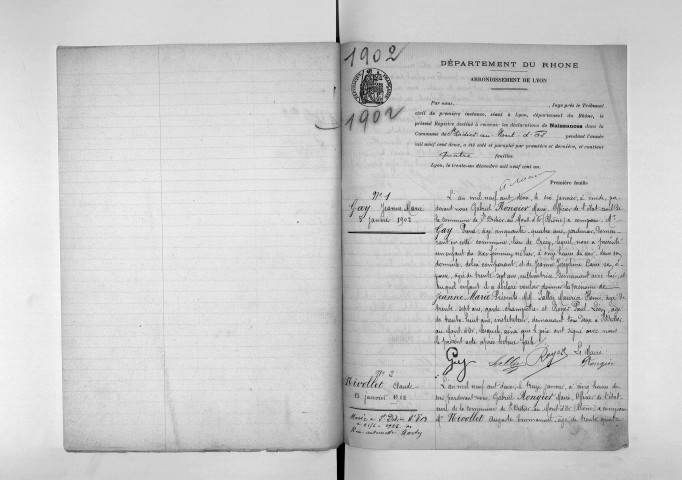 1902
1902
DÉPARTEMENT DU RHONE
ARRONDISSEMENT DE LYON
Par nous, Juge près le Tribunal
civil de première instance, séant à Lyon, département du Rhône, le
présent Registre destiné à recevoir les déclarations de Naissances dans la
Commune de St Didier au Mont d'Or pendant l'année
mil neuf cent deux, a été coté et paraphé par première et dernière, et contient
quatre feuilles.
Lyon, le trente-un décembre mil neuf cent un.
Première feuille
No 1
Gay Jeanne Marie
5 janvier 1902
L'an mil neuf cent deux, le six janvier, à midi, par
devant nous Gabriel Rongier Maire, Officier de l'état civil de
la commune de St Didier au Mont d'Or (Rhône) a comparu Mr
Gay Pierre, âgé cinquante quatre ans, jardinier, demeu-
rant en cette commune, lieu de Crecy, lequel nous a présenté
un enfant du sexe féminin, né hier, à onze heures du soir, dans son
domicile, de lui comparant, et de Jeanne Joséphine
pouse, âgée de trente sept ans, cultivatrice demeurant avec lui, et
auquel enfant il a déclaré vouloir donner les prénoms de
Jeanne Marie. Présents MM. Maurice Rémi, âgé de
trente sept ans, garde champêtre et Royer Paul Léon, âgé
de trente huit ans, instituteur, demeurant tous deux à St Didier
au Mont d'Or, lesquels, ainsi que le père ont signé avec nous
le présent acte après lecture faite.
Gay Royer Le Maire
Rongier
No 2
Nivollet Claude
13 janvier 1902
Marié à St Didier Mt d'Or
L'an mil neuf cent deux, le treize janvier, à cinq heures du
soir pardevant nous, Gabriel Rongier Maire, Officier de l'état
civil de la commune de St Didier au Mont d'Or (Rhône) a comparu
Mr Nivollet Auguste Emmanuel, âgé de trente quatre